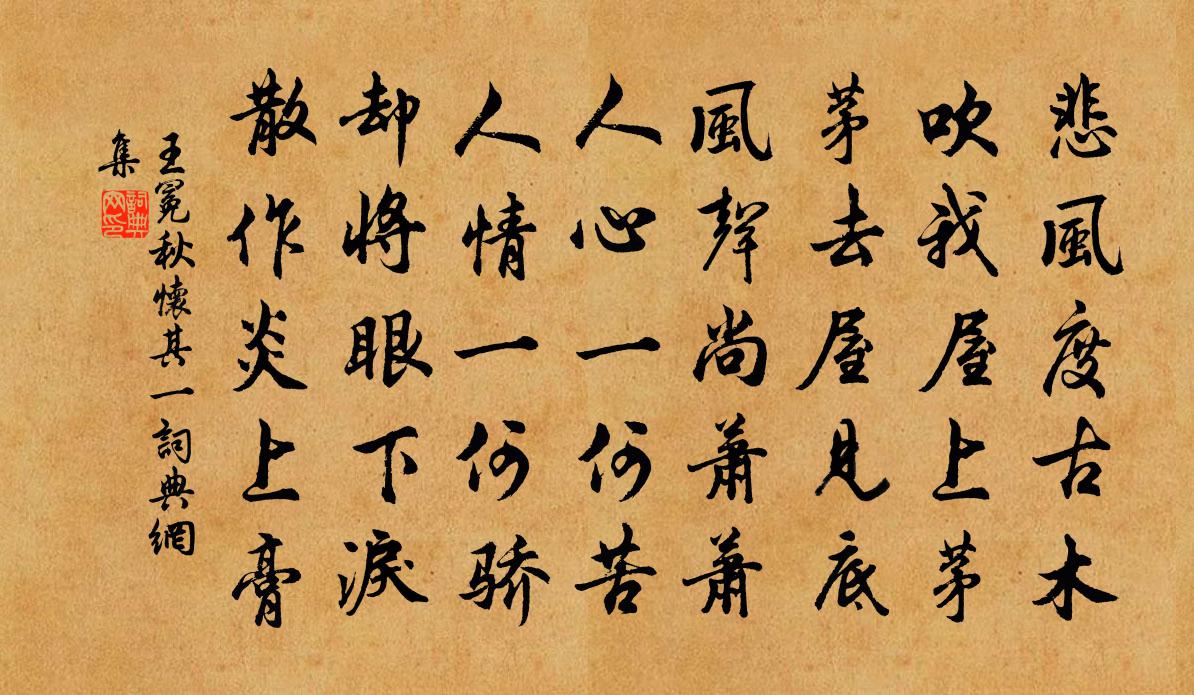 悲風度古木
吹我屋上茅
茅去屋見底
風聲尚蕭蕭
人心一何苦
人情一何骄
却將眼下淚
散作炎上膏
王冕秋懷其一詞典網
集
詞典
网印